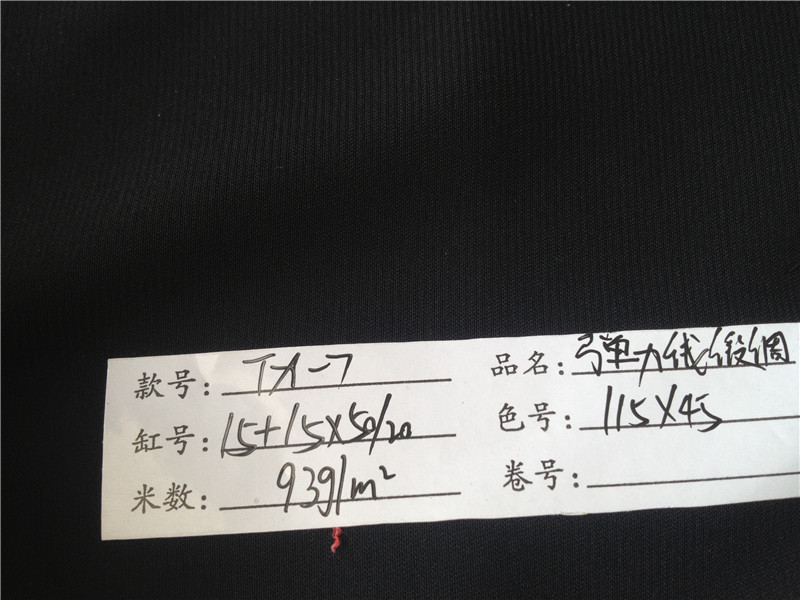 款号: TA-7
品名: 弹力线缎绸
缸号: 15+15X50/20
色号: 115X45
米数: 93g/m²
卷号: